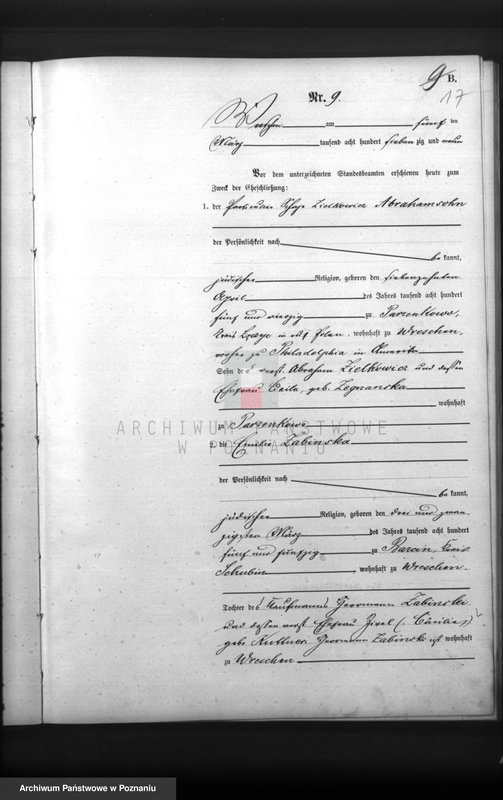 9 B.
17
Nr. 9.
Wreschen am fünf ten
März tausend acht hundert sieben zig und neun
Vor dem unterzeichneten Standesbeamten erschienen heute zum
Zweck der Eheschließung:
1. der Particulier Zielkowicz Abrahamsohn
der Persönlichkeit nach
be kannt,
jüdischer Religion, geboren den siebenzehnten
April des Jahres tausend acht hundert
fünf und vierzig zu Parzenkowo,
Kreis in russ. Polen, wohnhaft zu Wreschen,
zu Philadelphia in Amerika
Sohn des verst. Abraham Zielkowicz und dessen
Ehefrau Caila, geb. Legnanska
wohnhaft
zu Parzenkowo
2. die Emilie Zabinska
der Persönlichkeit nach
be kannt,
jüdischer Religion, geboren den drei und zwan
zigsten März des Jahres tausend acht hundert
fünf und fünfzig zu Barcin, Kreis
Schubin, wohnhaft zu Wreschen
Tochter des Kaufmanns Herrmann Zabinski
und dessen verst. Ehefrau Zirel (: Cäcilie :)
geb. Kuttner. Herrmann Zabinski ist wohnhaft
zu Wreschen
ARCHIWUM PAŃSTWOWE
W POZNANIU
Archiwum Państwowe w Poznaniu